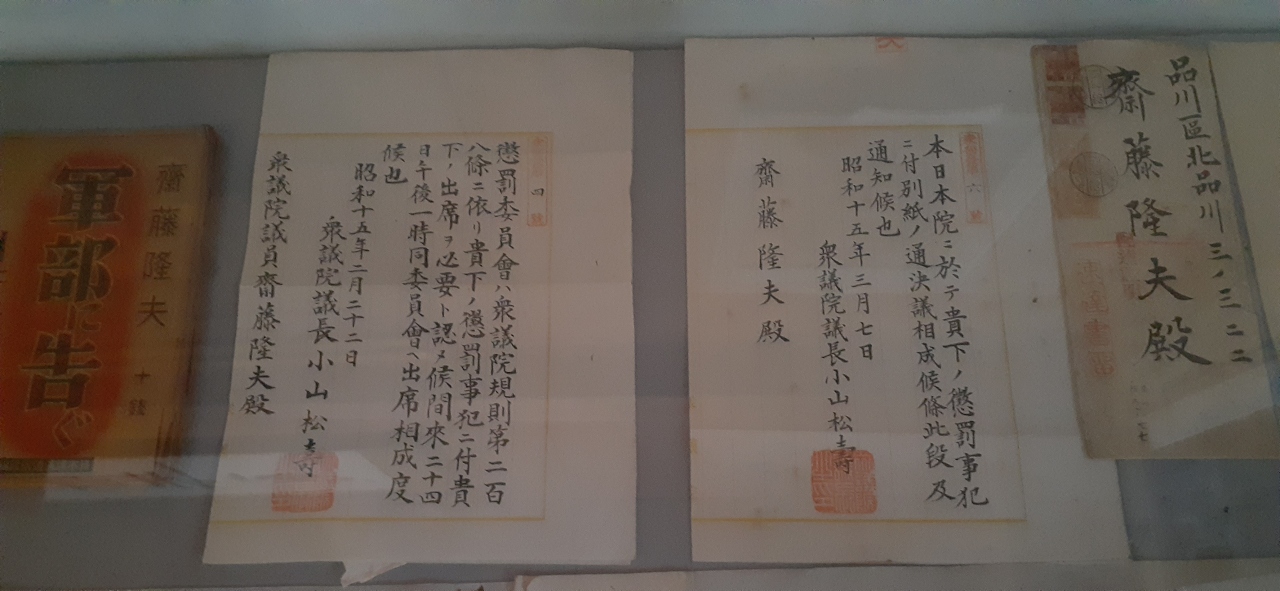 品川區北品川三ノ三二二
齋藤隆夫殿
六
本日本院ニ於テ貴下ノ懲罰事犯
ニ付別紙ノ通決議相成候條此段及
通知候也
昭和十五年三月七日
衆議院議長小山松壽
齋藤隆夫殿
四號
懲罰委員會ハ衆議院規則第二百
八條ニ依リ貴下ノ懲罰事犯ニ付貴
下ノ出席ヲ必要ト認メ候間來二十四
日午後一時同委員會ヘ出席相成度
候也
昭和十五年二月二十二日
衆議院議長小山松壽
衆議院議員齋藤隆夫殿
齋藤隆夫
十錢
軍部に告ぐ